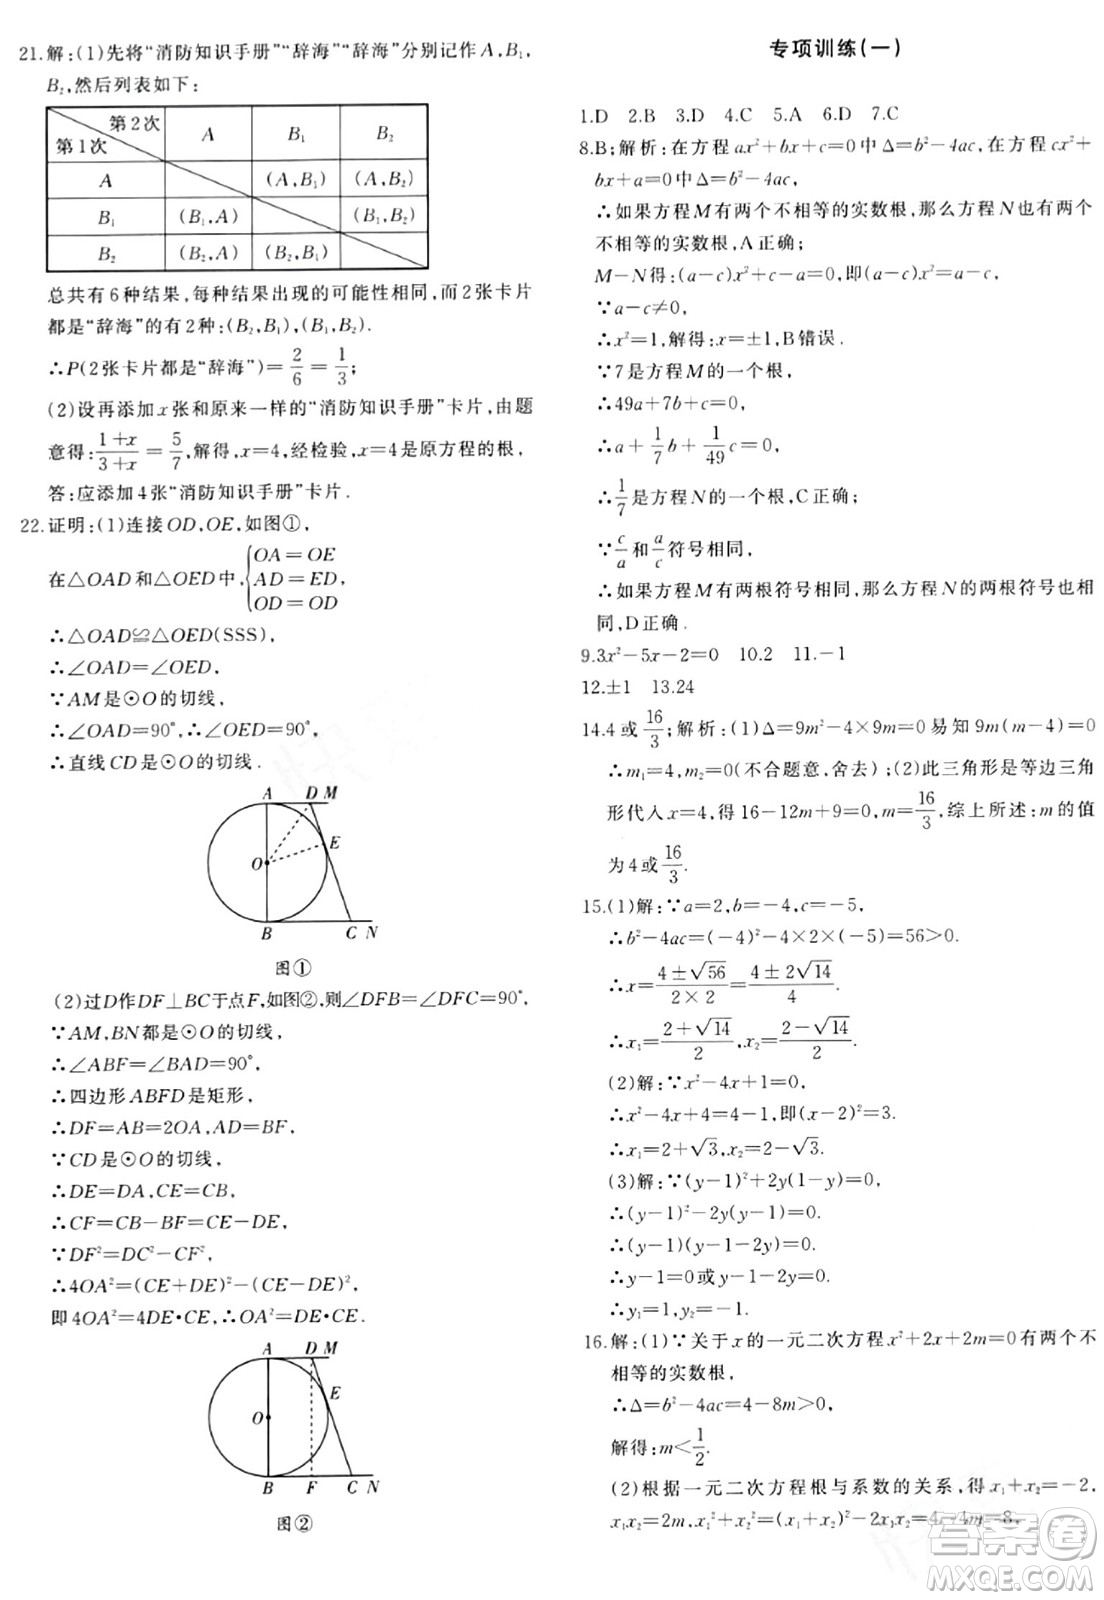 21.解:(1)先将“消防知识手册”“辞海”“辞海”分别记作A,B₁,
B₂,然后列表如下:
第2次 A B₁ B₂
第1次
A (A,B₁) (A,B₂)
B₁ (B₁,A) (B₁,B₂)
B₂ (B₂,A) (B₂,B₁)
总共有6种结果,每种结果出现的可能性相同,而2张卡片
都是“辞海”的有2种:(B₂,B₁),(B₁,B₂).
∴P(2张卡片都是“辞海”)=2/6=1/3;
(2)设再添加x张和原来一样的“消防知识手册”卡片,由题
意得:(1+x)/(3+x)=5/7,解得,x=4,经检验,x=4是原方程的根,
答:应添加4张“消防知识手册”卡片.
22.证明:(1)连接OD,OE,如图①,
在△OAD和△OED中,{OA=OE
AD=ED,
OD=OD
∴△OAD≌△OED(SSS),
∴∠OAD=∠OED,
∵AM是⊙O的切线,
∴∠OAD=90°,∴∠OED=90°,
∴直线CD是⊙O的切线.
A D M
E
O
B C N
图①
(2)过D作DF⊥BC于点F,如图②,则∠DFB=∠DFC=90°,
∵AM,BN都是⊙O的切线,
∴∠ABF=∠BAD=90°,
∴四边形ABFD是矩形,
∴DF=AB=2OA,AD=BF,
∵CD是⊙O的切线,
∴DE=DA,CE=CB,
∴CF=CB-BF=CE-DE,
∵DF²=DC²-CF²,
∴4OA²=(CE+DE)²-(CE-DE)²,
即4OA²=4DE•CE,∴OA²=DE•CE.
A D M
E
O
B F C N
图②
专项训练(一)
1.D 2.B 3.D 4.C 5.A 6.D 7.C
8.B;解析:在方程ax²+bx+c=0中Δ=b²-4ac,在方程cx²+
bx+a=0中Δ=b²-4ac,
∴如果方程M有两个不相等的实数根,那么方程N也有两个
不相等的实数根,A正确;
M-N得:(a-c)x²+c-a=0,即(a-c)x²=a-c,
∵a-c≠0,
∴x²=1,解得:x=±1,B错误.
∵7是方程M的一个根,
∴49a+7b+c=0,
∴a+1/7b+1/49c=0,
∴1/7是方程N的一个根,C正确;
∵c/a和a/c符号相同,
∴如果方程M有两根符号相同,那么方程N的两根符号也相
同,D正确.
9.3x²-5x-2=0 10.2 11.-1
12.±1 13.24
14.4或16/3;解析:(1)Δ=9m²-4×9m=0易知9m(m-4)=0
∴m₁=4,m₂=0(不合题意,舍去);(2)此三角形是等边三角
形代入x=4,得16-12m+9=0,m=16/3,综上所述:m的值
为4或16/3.
15.(1)解:∵a=2,b=-4,c=-5,
∴b²-4ac=(-4)²-4×2×(-5)=56>0.
∴x=(4±√56)/(2×2)=(4±2√14)/4.
∴x₁=(2+√14)/2,x₂=(2-√14)/2.
(2)解:∵x²-4x+1=0,
∴x²-4x+4=4-1,即(x-2)²=3.
∴x₁=2+√3,x₂=2-√3.
(3)解:∵(y-1)²+2y(1-y)=0,
∴(y-1)²-2y(y-1)=0.
∴(y-1)(y-1-2y)=0.
∴y-1=0或-y-1=0.
∴y₁=1,y₂=-1.
16.解:(1)∵关于x的一元二次方程x²+2x+2m=0有两个不
相等的实数根,
∴Δ=b²-4ac=4-8m>0,
解得:m<1/2.
(2)根据一元二次方程根与系数的关系,得x₁+x₂=-2,
x₁x₂=2m,x₁²+x₂²=(x₁+x₂)²-2x₁x₂=4-4m=8,
答案圈
MXQE.COM